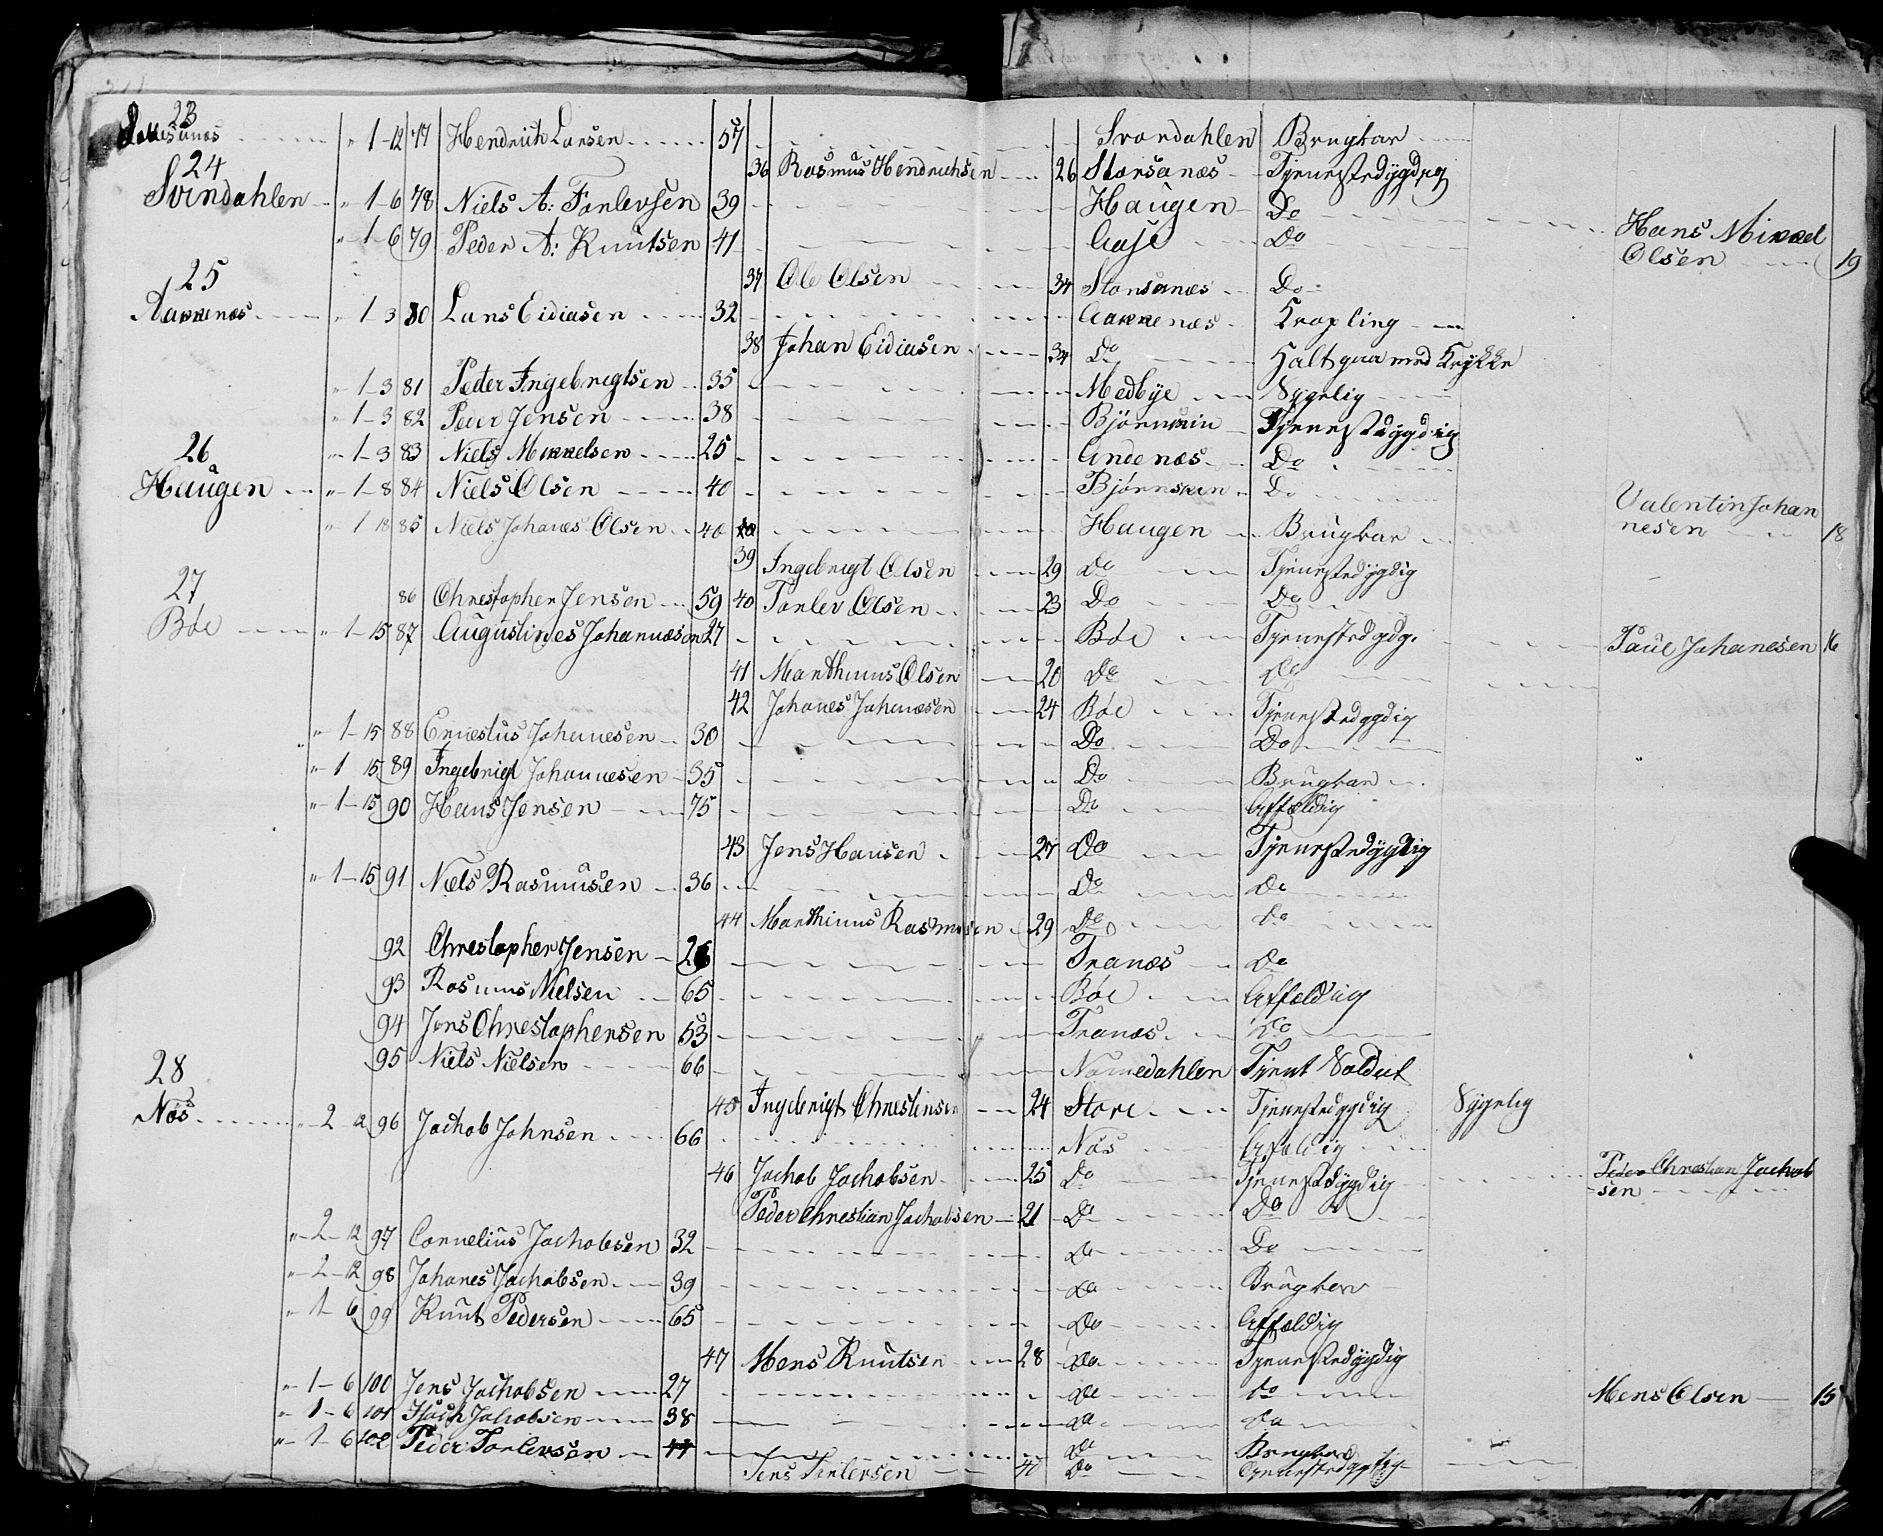 23
" 1-12 77 Hendrich Larsen 57 Svordahlen Brugbar
24
36 Rasmus Hendrichsen 26 Storsanæs Tjenestedygdig
Svindahlen " 1-6 78 Niels A: Torlevsen 39 Haugen Do
" 1-6 79 Peder A: Knutsen 41 Aase Do Hans Mikael
Olsen 19
25
37 Ole Olsen 34 Storsanæs Do
Aakenæs " 1-3 80 Lars Eidiasen 32 Aakkenæs Krøpling
38 Johan Eidiasen 34 Do Halt gaar med Krykke
" 1-3 81 Peder Ingebrigtsen 35 Medbye Sygelig
" 1-3 82 Peder Jensen 38 Tjenestedygdig
26
" 1-3 83 Niels Mikkelsen 25 Andenæs Do
Haugen " 1-8 84 Niels Olsen 40 Do
" 1 18 85 Niels Johanes Olsen 40 Haugen Brugbar Valentin Johan
nesen 18
39 Ingebrigt Olsen 29 Do Tjenestedygdig
27
86 Christopher Jensen 59 40 Torlev Olsen 23 Do Do
Bøe " 1-15 87 Augustines Johannæsen 27 Bøe Tjenestedygdg. Paul Johanesen 16
41 Marthinus Olsen 20 Do Do
42 Johanes Johanæsen 24 Bøe Tjenestedygdig
" 1-15 88 Ernestus Johannesen 30 Do Do
" 1 15 89 Ingebrigt Johannesen 35 Do Brugbar
" 1-15 90 Hans Jensen 75 Do Affældig
43 Jens Hansen 27 Do Tjenestedygdig
" 1-15 91 Niels Rasmusen 36 Do Do
44 Marthinus Rasmusen 29 Do Do
92 Christopher Jensen 26 Tranæs Do
93 Rasmus Nielsen 65 Bøe Affældig
94 Jens Christophersen 53 Tranæs Do
95 Niels Nielsen 66 Namedahlen Tjent Soldat
28
45 Ingebrigt Christensen 24 Store Tjenestedygdig Sygelig
Nøs " 2 12 96 Jachob Johnsen 66 Nøs Afældig
46 Jachob Jachobsen 25 Do Tjenestedygdig Peder Christian Jachob
-sen
Peder Christian Jachobsen 21 Do Do
" 2-12 97 Cornelius Jachobsen 32 Do Do
" 2-12 98 Johanes Jachobsen 39 Do Brugber
" 1-6 99 Knut Pedersen 65 Do Affældig
47 Mons Knutsen 28 Do Tjenestedygdig
" 1-6 100 Jens Jachobsen 27 Do Do Mons Olsen 15
" 1-6 101 Isach Jacobsen 38 Do Do
" 1-6 102 Peder Torlevsen 44 Do Brugbar
Jens Torlevsen 40 Do Tjenestedygtig